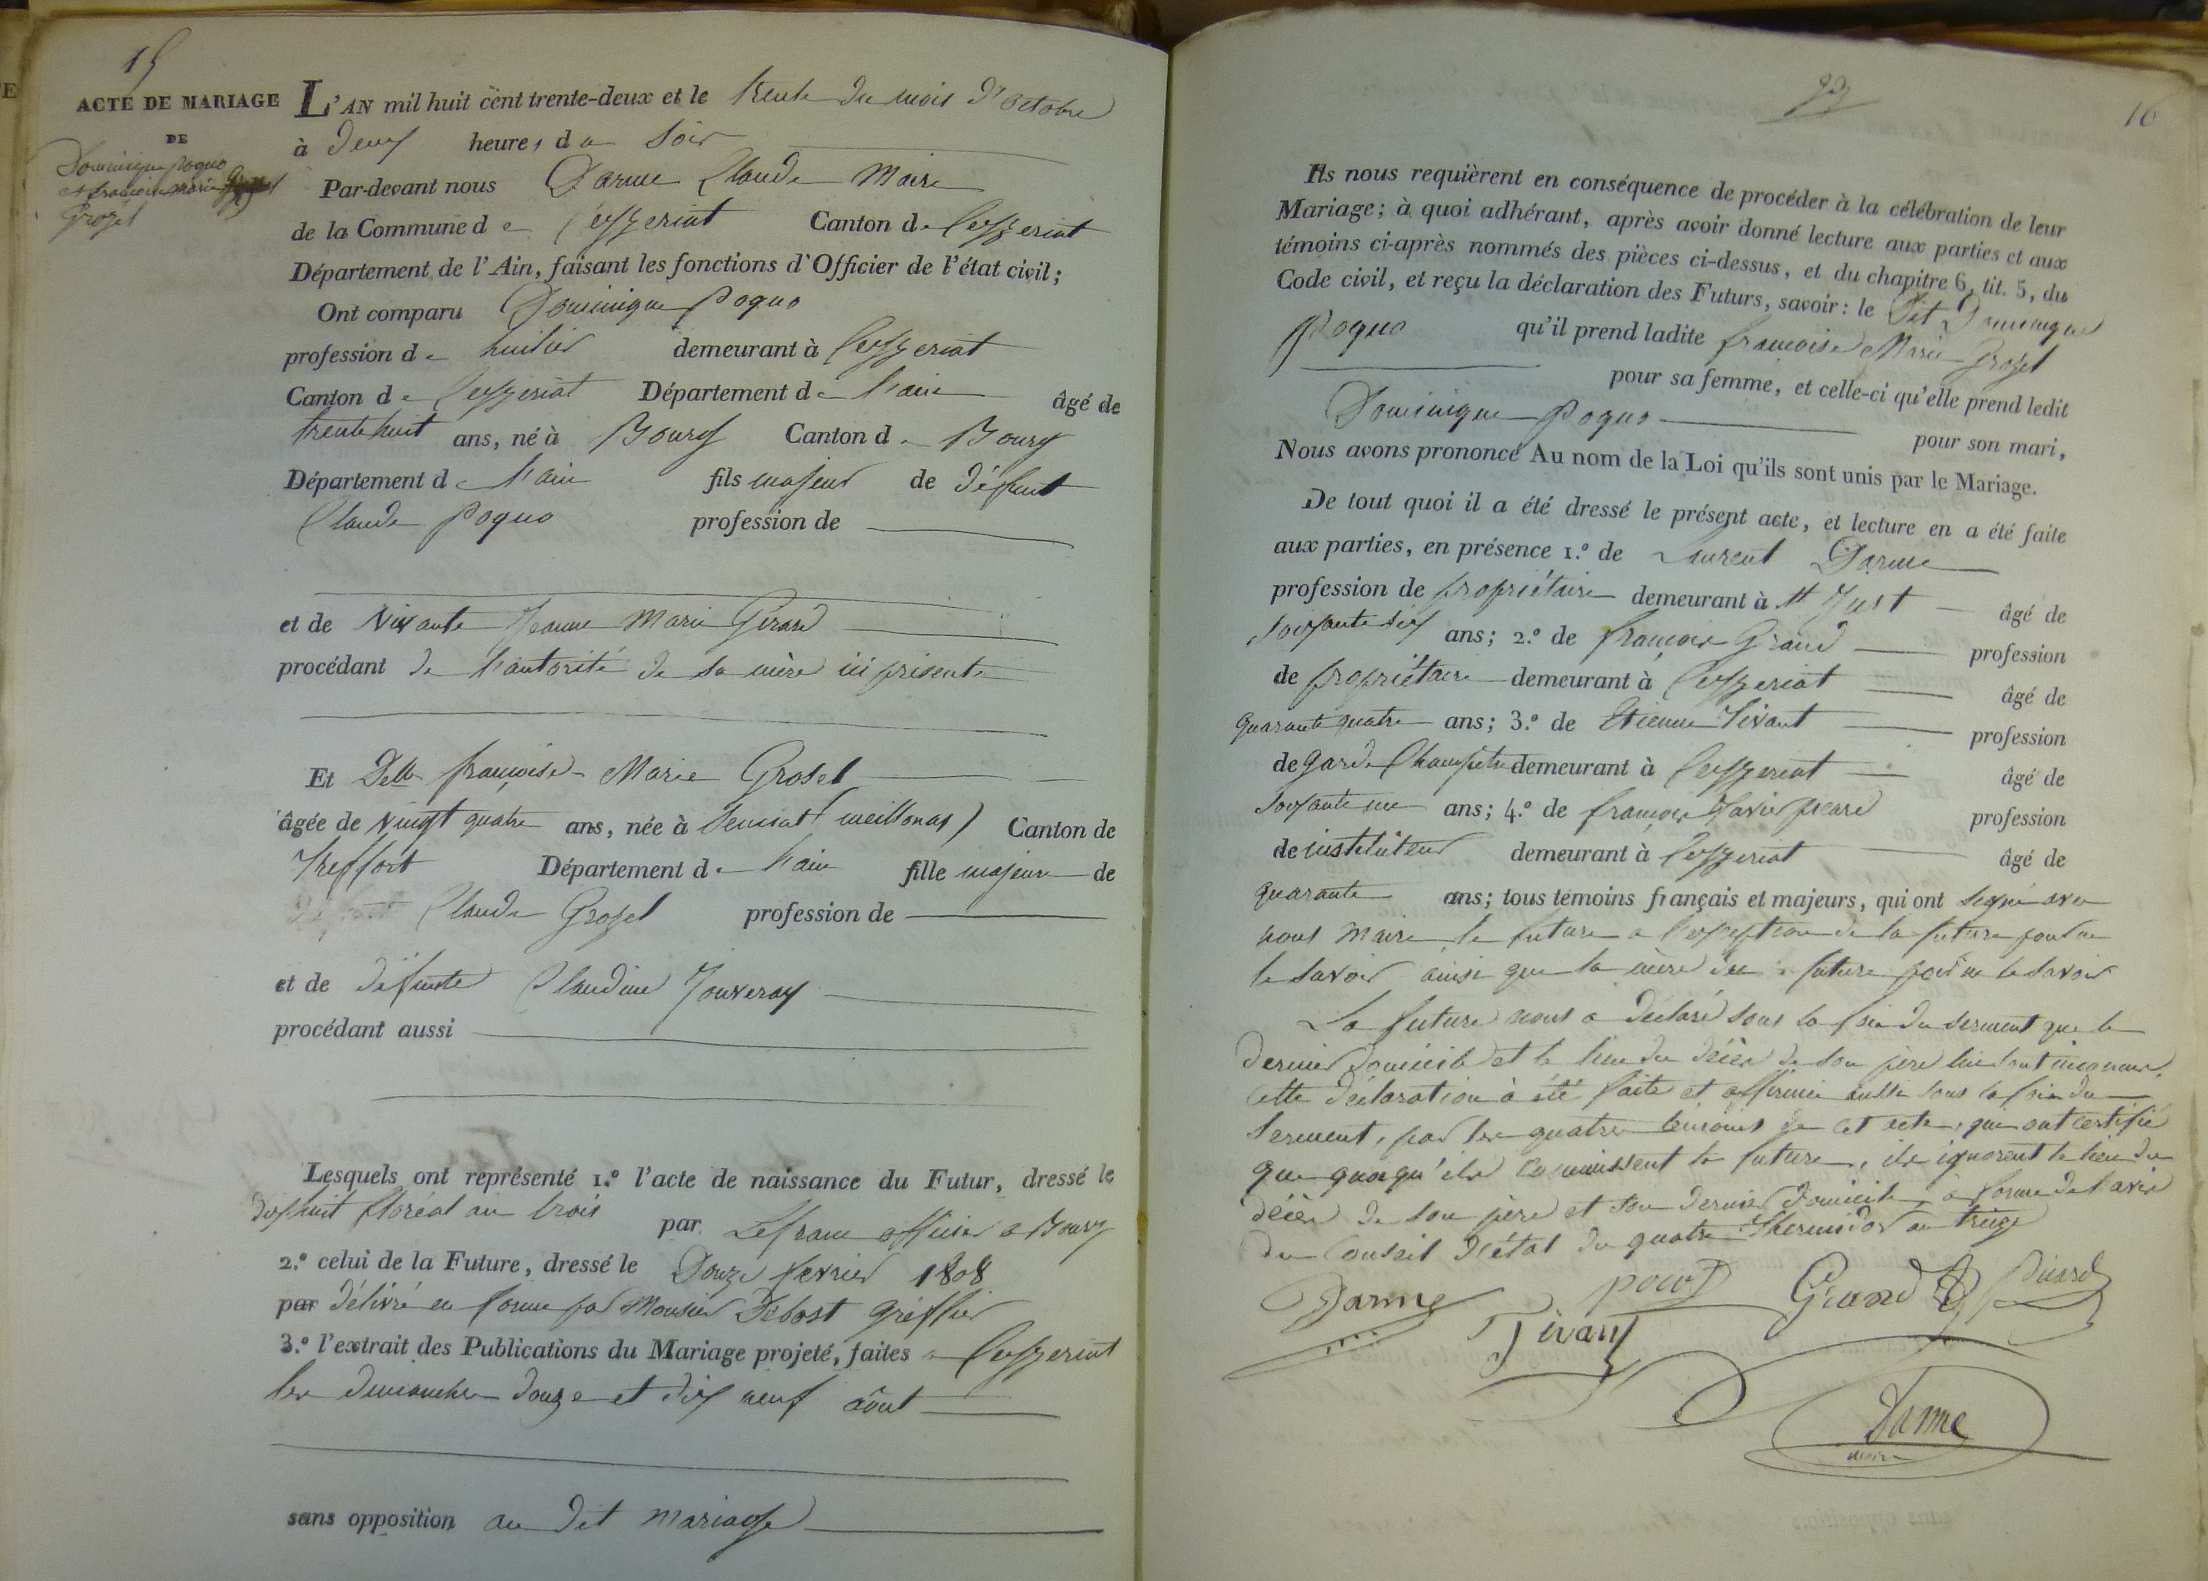 15
ACTE DE MARIAGE
DE
Dominique poquo
et françoise marie
Grozel
L'AN mil huit cent trente-deux et le trente du mois d'octobre
à deux heures du soir
Par-devant nous Darme Claude Maire
de la Commune de Ceyzeriat Canton de Ceyzeriat
Département de l'Ain, faisant les fonctions d'Officier de l'état civil;
Ont comparu Dominique Poquo
profession de huilier demeurant à Ceyzeriat
Canton de Ceyzeriat Département de l'ain âgé de
trente huit ans, né à Bourg Canton de Bourg
Département de l'ain fils majeur de défunt
Claude Poquo profession de
et de vivante Jeanne Marie Girard
procédant de l'autorité de sa mère ici présente
Et Delle françoise Marie Grosel
âgée de vingt quatre ans, née à Sanciat (meillonas) Canton de
Treffort Département de l'ain fille majeure de
Claude Grozel profession de
et de défunte Claudine Jouveray
procédant aussi
Lesquels ont représenté 1.º l'acte de naissance du Futur, dressé le
dix huit floréal an trois par Lefranc officier a Bourg
2.º celui de la Future, dressé le Douze fevrier 1808
par délivré en forme par Monsieur Debost Gréffier
3.º l'extrait des Publications du Mariage projeté, faites a Ceyzeriat
les dimanches douze et dix neuf août
sans opposition au dit mariage
16
Ils nous requièrent en conséquence de procéder à la célébration de leur
Mariage; à quoi adhérant, après avoir donné lecture aux parties et aux
témoins ci-après nommés des pièces ci-dessus, et du chapitre 6, tit. 5, du
Code civil, et reçu la déclaration des Futurs, savoir: le Dit Dominique
Poquo qu'il prend ladite françoise Marie Grozel
pour sa femme, et celle-ci qu'elle prend ledit
Dominique Poquo pour son mari,
Nous avons prononcé Au nom de la Loi qu'ils sont unis par le Mariage.
De tout quoi il a été dressé le présent acte, et lecture en a été faite
aux parties, en présence 1.º de Laurent Darme
profession de propriétaire demeurant à St Just âgé de
soixante six ans; 2.º de françois Grand profession
de propriétaire demeurant à Ceyzeriat âgé de
quarante quatre ans; 3.º de Etienne Tivant profession
de garde Champêtre demeurant à Ceyzeriat âgé de
soixante un ans; 4.º de françois Xavier picard profession
de instituteur demeurant à Ceyzeriat âgé de
quarante ans; tous témoins français et majeurs, qui ont signé avec
nous Maire le future a l'exception de la future pour ne
le savoir ainsi que la mère du future pour ne le savoir
La future nous a déclaré sous la foi du serment que le
dernier domicile et le lieu du décès de son père lui sont inconnus.
cette déclaration à été faite et affirmée aussi sous la foi du
serment, par les quatres temoins de cet acte, qui ont certifié
que quoiqu'ils connaissent la future, ils ignorent le lieu du
décès de son père et son dernier domicile, à forme de l'avis
du Conseil d'état du quatre Thermidor an treize
Darme pocoD Grand Picard
Tivant
Darme
maire